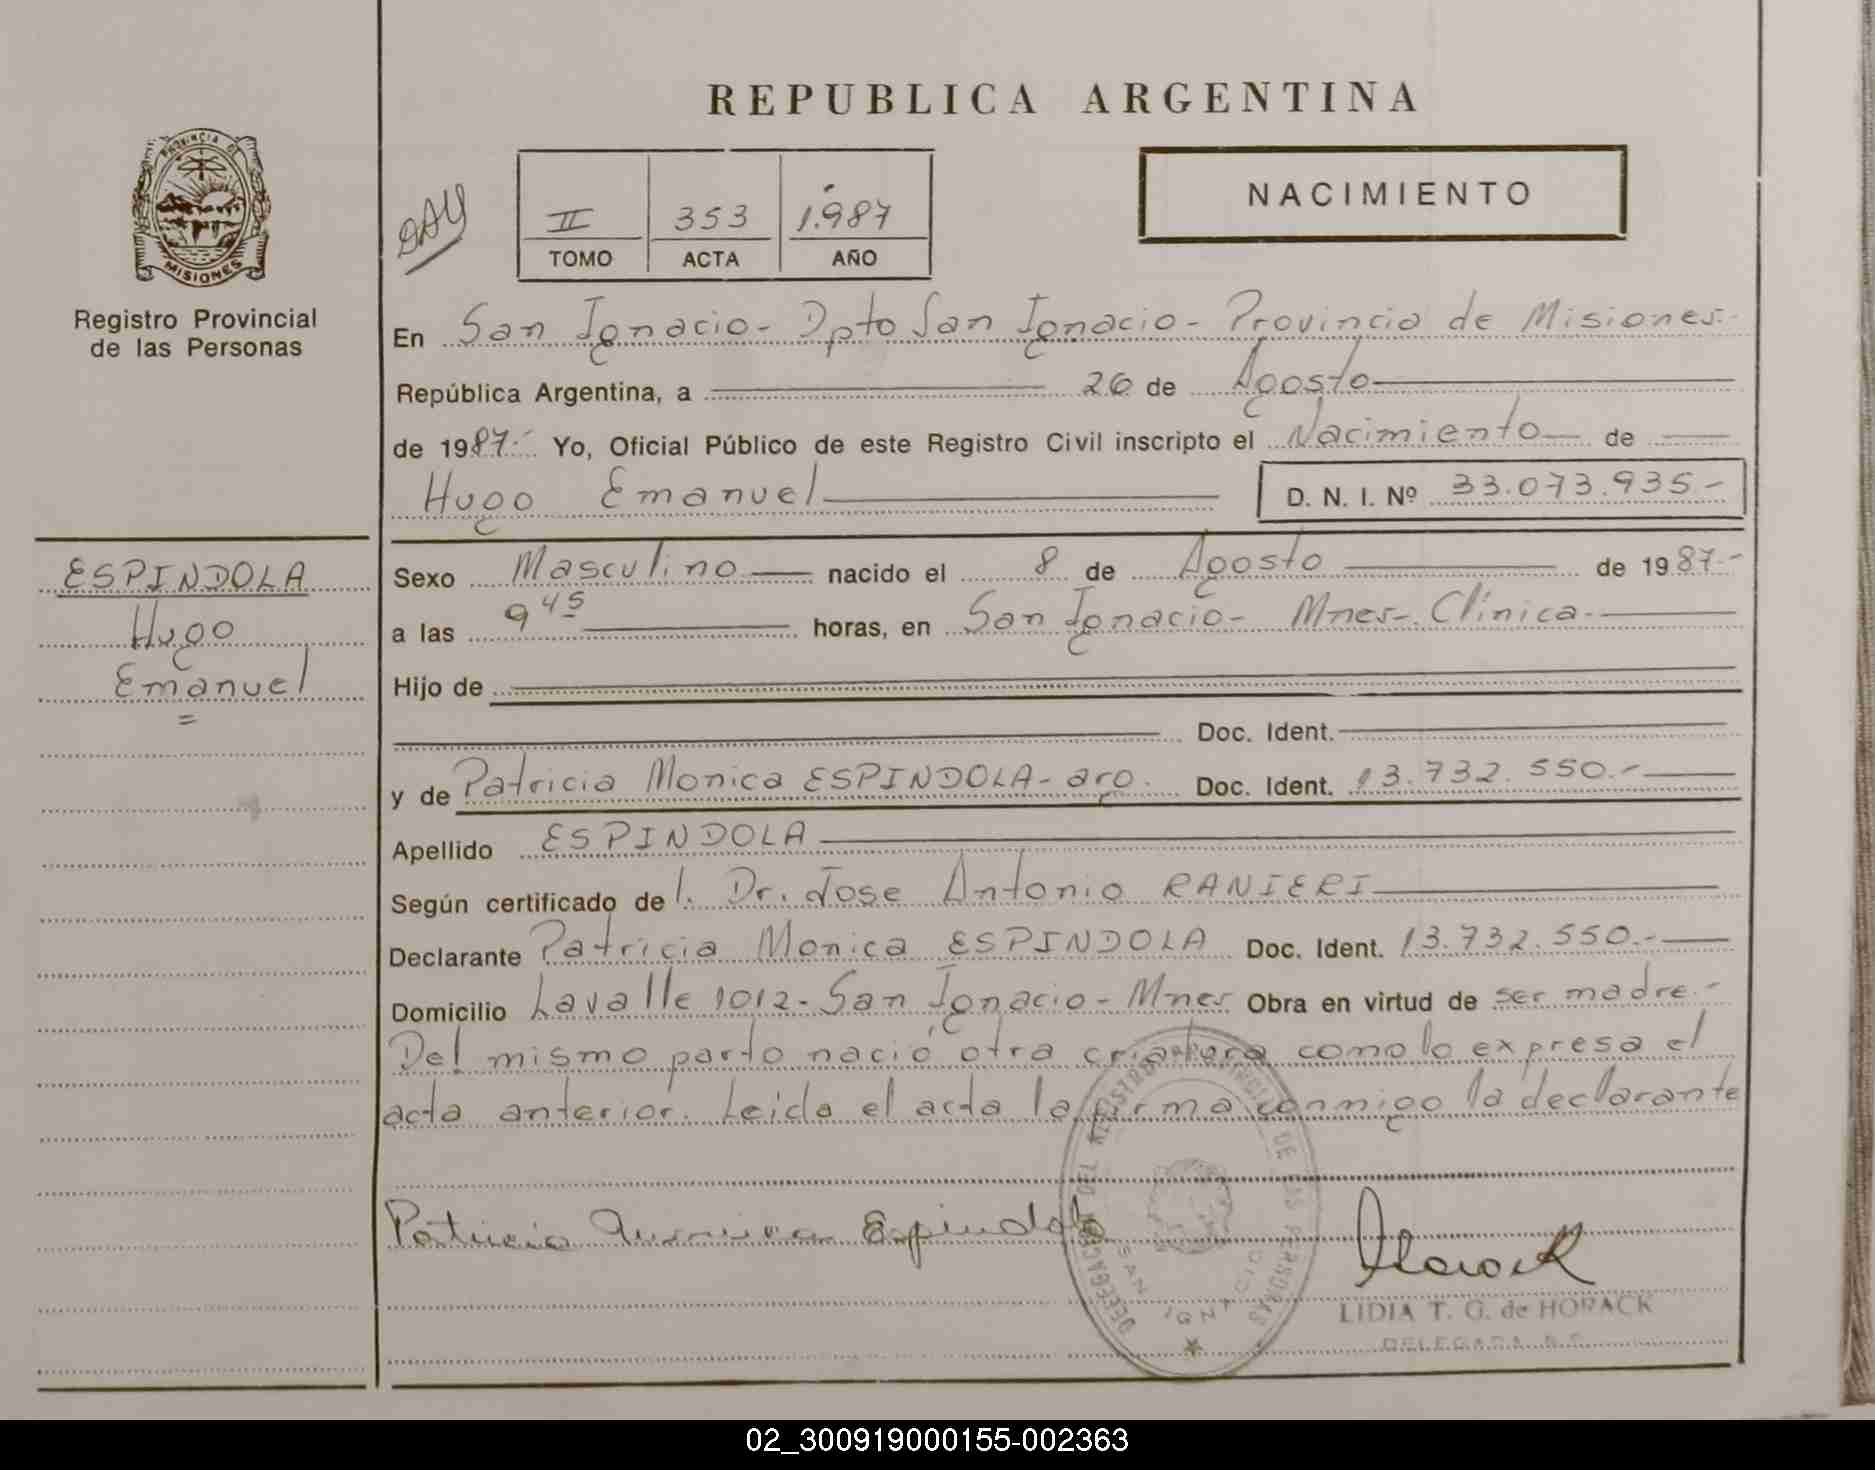 REPUBLICA ARGENTINA
PROVINCIA DE
MISIONES
Registro Provincial
de las Personas
II 353 1.987
TOMO ACTA AÑO
NACIMIENTO
En San Ignacio - Dpto San Ignacio - Provincia de Misiones.-
República Argentina, a 26 de Agosto
de 1987.- Yo, Oficial Público de este Registro Civil inscripto el Nacimiento de
Hugo Emanuel D. N. I. Nº 33.073.935.-
ESPINDOLA
Hugo
Emanuel
=
Sexo Masculino nacido el 8 de Agosto de 1987.-
a las 9 45 horas, en San Ignacio - Mnes-. Clínica.-
Hijo de
Doc. Ident.
y de Patricia Monica ESPINDOLA - arg. Doc. Ident. 13.732.550.-
Apellido ESPINDOLA
Según certificado de l. Dr. Jose Antonio RANIERI
Declarante Patricia Monica ESPINDOLA Doc. Ident. 13.732.550.-
Domicilio Lavalle 1012 - San Ignacio - Mnes Obra en virtud de ser madre.-
Del mismo parto nació otra criatura como lo expresa el
acta anterior. Leida el acta la firma conmigo la declarante
Patricia Espindola
DELEGACION DEL REGISTRO PROVINCIAL DE LAS PERSONAS
SAN IGNACIO
Horack
LIDIA T. G. de HORACK
DELEGADA R.P.
02_300919000155-002363